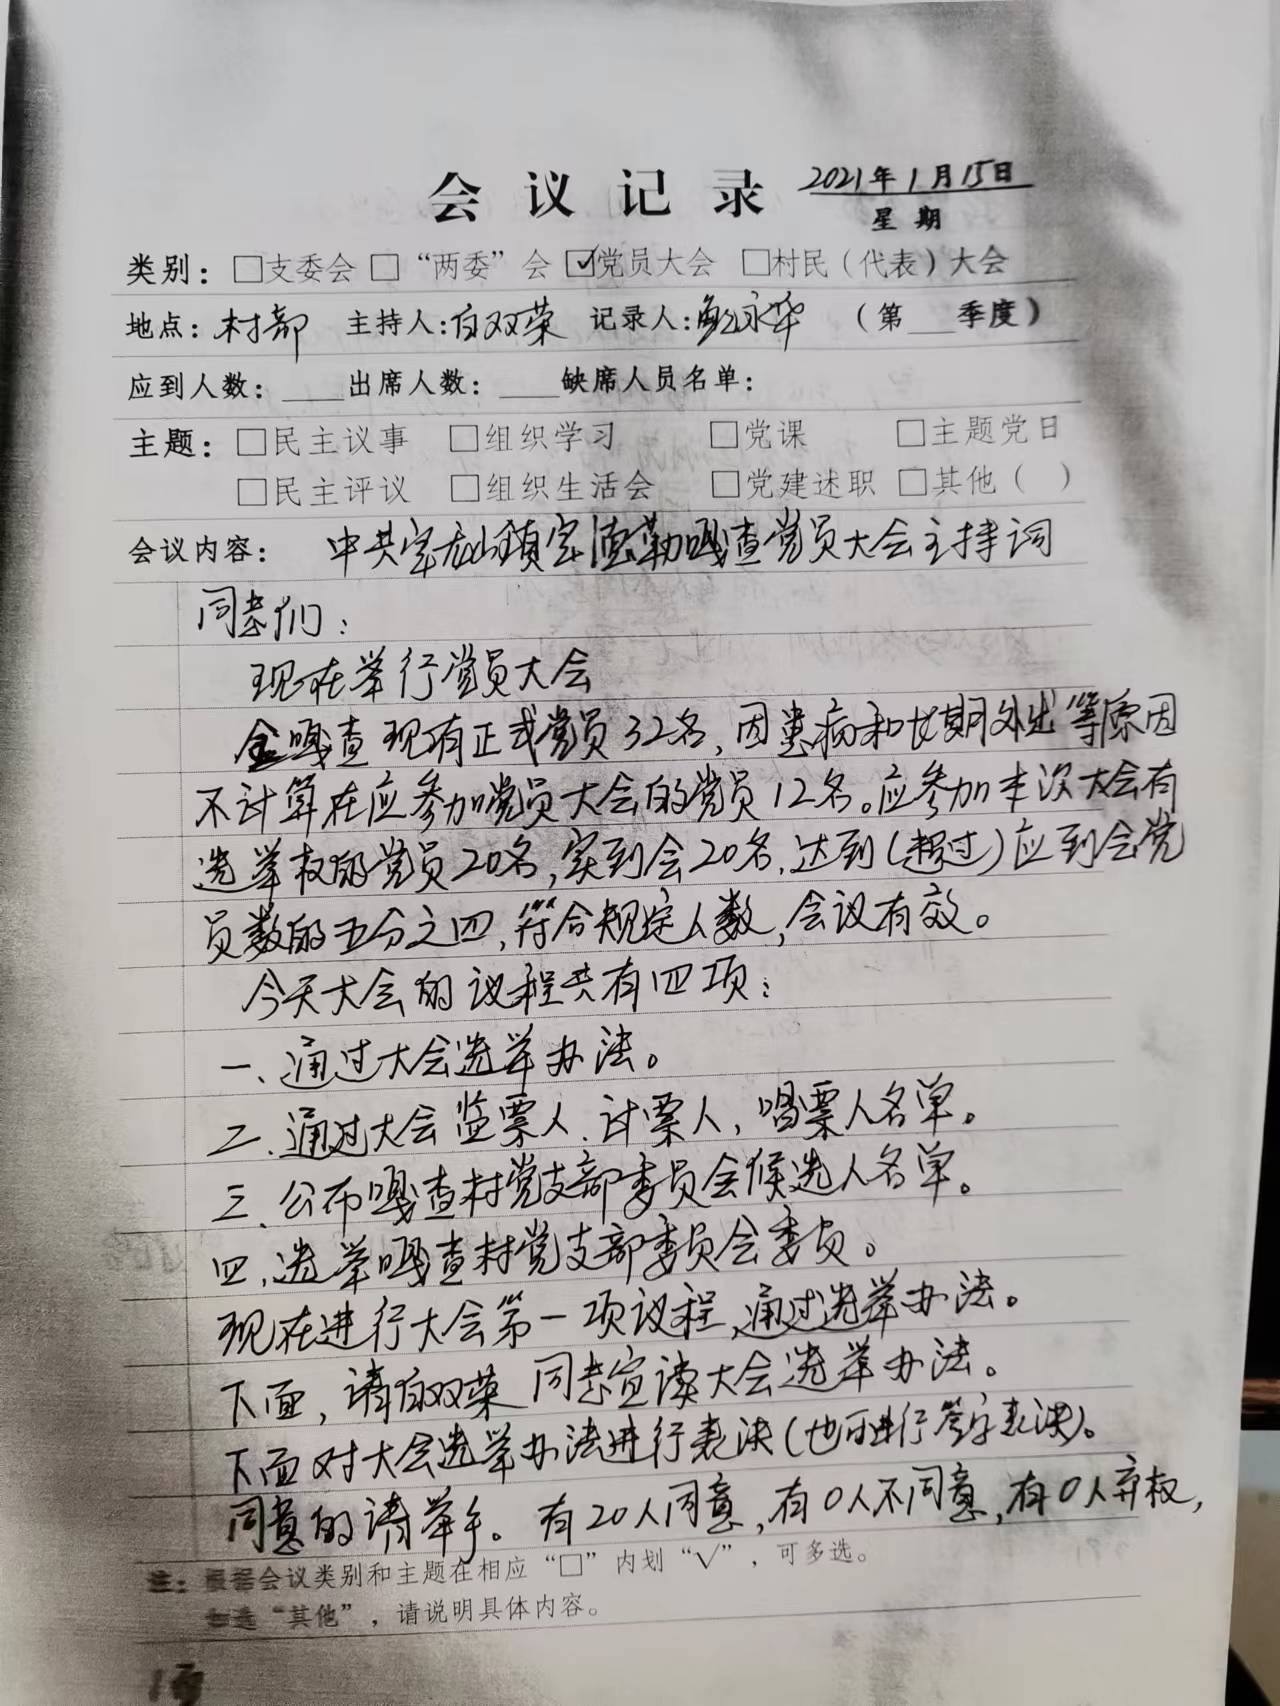 会议记录 2021年1月15日
星期
类别：□支委会 □“两委”会 ☑党员大会 □村民（代表）大会
地点：村部 主持人：白双荣 记录人：永华 （第___季度）
应到人数：____出席人数：____缺席人员名单：
主题：□民主议事 □组织学习 □党课 □主题党日
□民主评议 □组织生活会 □党建述职 □其他（ ）
会议内容： 中共宝龙山镇宝德勒嘎查党员大会主持词
同志们：
现在举行党员大会
全嘎查现有正式党员32名，因患病和长期外出等原因
不计算在应参加党员大会的党员12名。应参加本次大会有
选举权的党员20名，实到会20名，达到（超过）应到会党
员数的五分之四，符合规定人数，会议有效。
今天大会的议程共有四项：
一、通过大会选举办法。
二、通过大会监票人、计票人，唱票人名单。
三、公布嘎查村党支部委员会候选人名单。
四、选举嘎查村党支部委员会委员。
现在进行大会第一项议程，通过选举办法。
下面，请白双荣同志宣读大会选举办法。
下面对大会选举办法进行表决（也可进行签字表决）。
同意的请举手。有20人同意，有0人不同意，有0人弃权，
注：根据会议类别和主题在相应“□”内划“√”，可多选。
如选“其他”，请说明具体内容。